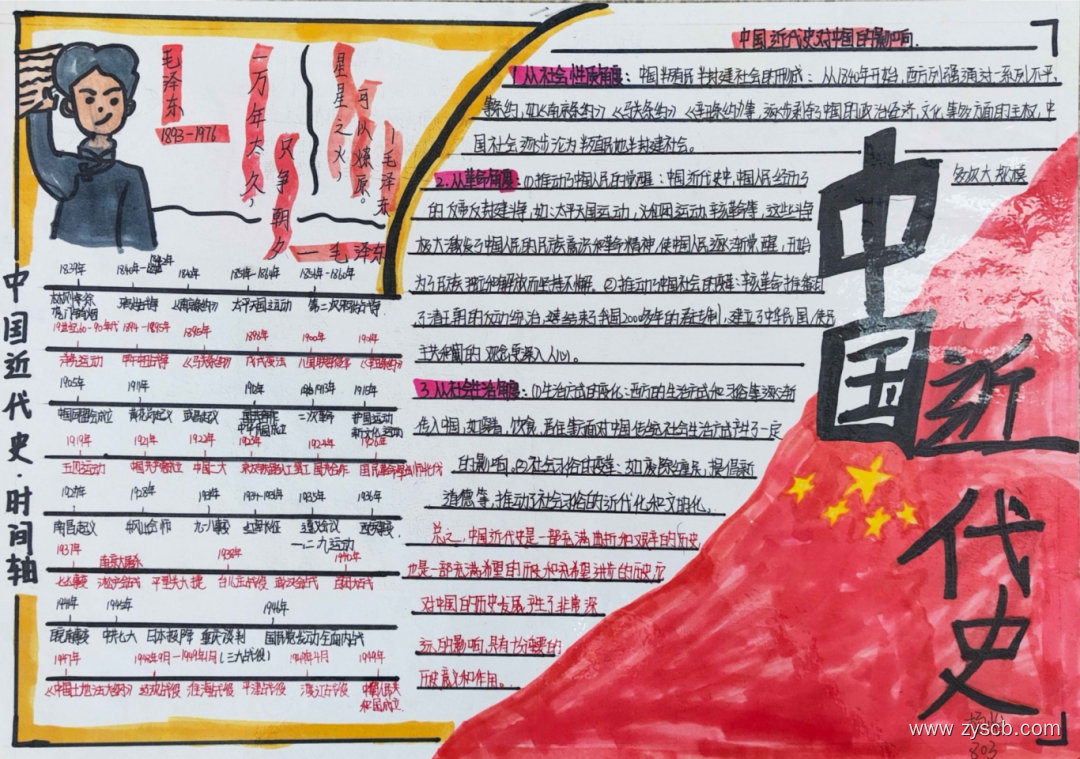 毛泽东
1893-1976
一万年太久,
只争朝夕
——毛泽东
星星之火,
可以燎原。
—毛泽东
中国近代史·时间轴
1839年 1840年-1842年 1842年 1851年-1864年 1856年-1860年
虎门销烟 鸦片战争 《南京条约》 太平天国运动 第二次鸦片战争
19世纪60-90年代 1894-1895年 1895年 1898年 1900年 1901年
洋务运动 甲午中日战争 《马关条约》 戊戌变法 八国联军侵华 《辛丑条约》
1905年 1911年 1912年 1913年 1915年
中国同盟会成立 黄花岗起义 武昌起义 中华民国成立 二次革命 护国运动
新文化运动
1919年 1921年 1922年 1923年 1924年 1926年
五四运动 中国共产党成立 中共二大 京汉铁路工人罢工 国共合作 国民革命军出师北伐
1927年 1928年 1931年 1934-1936年 1935年 1936年
南昌起义 井冈山会师 九一八事变 红军长征 遵义会议 西安事变
一二九运动
1937年 南京大屠杀 1938年 1940年
七七事变 淞沪会战 平型关大捷 台儿庄战役 武汉会战 百团大战
1941年 1945年 1946年
皖南事变 中共七大 日本投降 重庆谈判 国民党发动全面内战
1947年 1948年9月-1949年1月(三大战役) 1949年4月 1949年
《中国土地法大纲》 辽沈战役 淮海战役 平津战役 渡江战役 中华人民共
和国成立
中国近代史对中国的影响
1.从社会性质角度：中国半殖民半封建社会的形成：从1840年开始,西方列强通过一系列不平
等条约,如《南京条约》《马关条约》《辛丑条约》等,逐步剥夺了中国的政治经济,文化等多方面的主权,中
国社会逐步沦为半殖民地半封建社会。
2.从革命角度：①推动了中国人民的觉醒：中国近代史中,中国人民经历了
的反帝反封建斗争,如太平天国运动,义和团运动,辛亥革命等,这些斗争
极大激发了中国人民的民族意识和革命精神,使中国人民逐渐觉醒,开始
为了民族独立和解放而坚持不懈。②推动了中国社会的变革：辛亥革命推翻
了清王朝的反动统治,结束了中国2000多年的君主制,建立了中华民国,使民
主共和的观念更深入人心。
3.从社会生活角度：①生活方式的变化：西方的生活方式和习俗等逐渐
传入中国,如服着,饮食,居住等方面对中国传统社会生活方式产生了一定
的影响。②社会习俗的变革：如废除缠足,提倡新
道德等,推动了社会习俗的近代化和文明化。
总之,中国近代史是一部充满曲折和艰辛的历史,
也是一部充满希望的历史和充希望进步的历史,它
对中国的历史发展产生了非常深
远的影响,具有十分重要的
历史意义和作用。
多次大规模
中国近代史
803
www.zyscb.com